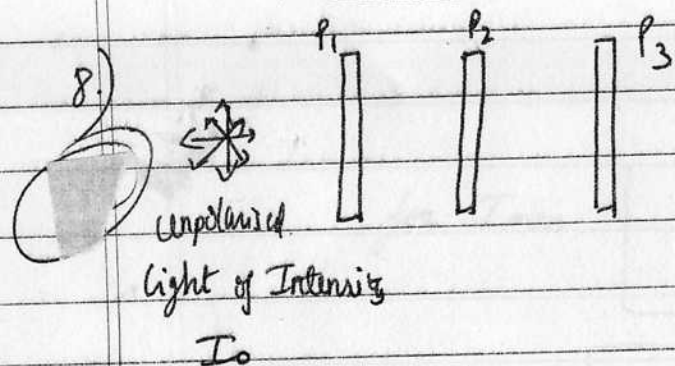 P1 P2 P3
8.
Unpolarised
light of Intensity
Io